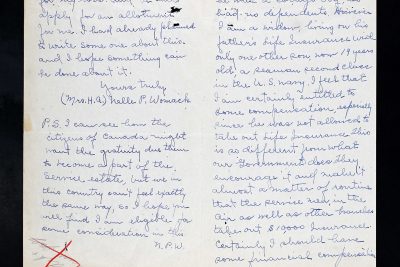 apply for an allotment
for me. I had already planned
to write some one about this.
and I hope something can
be done about it.
Yours truly
(Mrs. H.A.) Nelle P. Womack
P.S. I can see how the
citizens of Canada might
want the gratuity due them
to become a part of the
Service estate, but we in
this country can't feel exactly
the same way, so I hope you
will find I am eligible for
some consideration in this
N.P.W.
had no dependents. However
I am a widow, living on his
father's Life Insurance with
only one other son now 19 years
old, a seaman second class
in the U.S. navy. I feel that
I am certainly entitled to
some compensation, especially
since he was not allowed to
take out Life Insurance. This
is so different from what
our Government does. They
encourage it and make it
almost a matter of routine
that the service men in the
air as well as other branches
take out $10000 Insurance.
Certainly I should have
some financial compensation